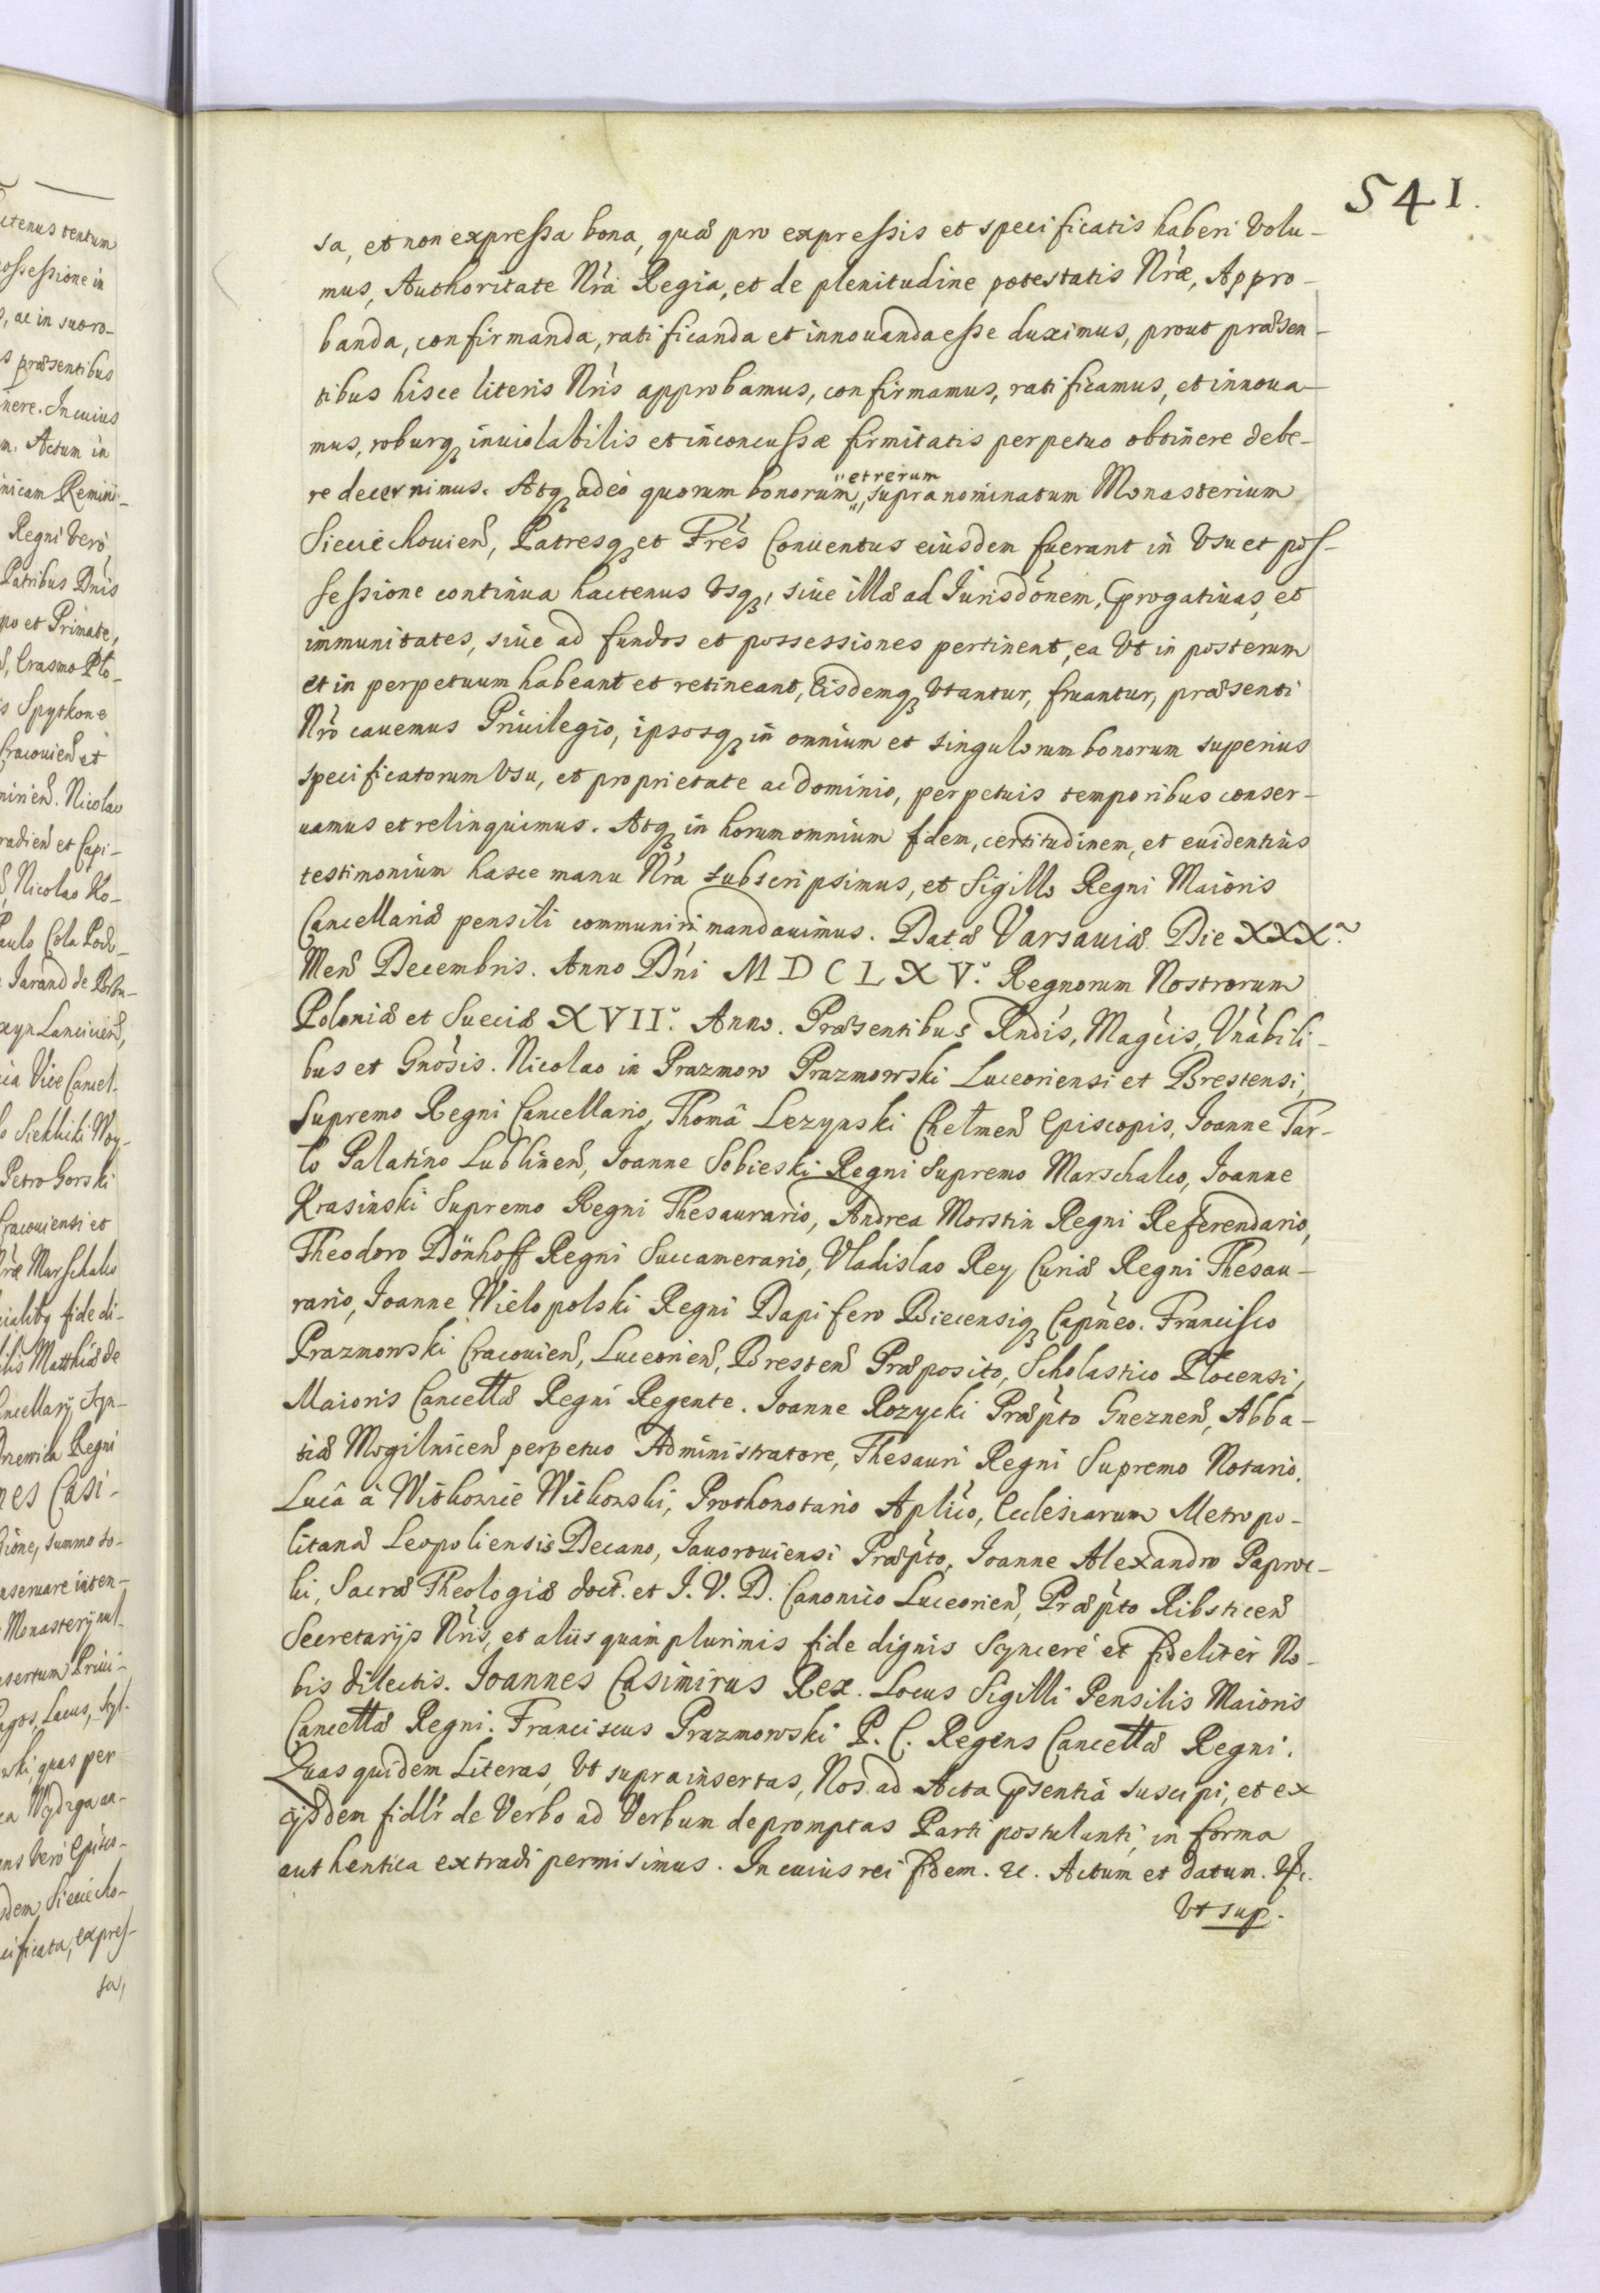 541.
sa, et non expressa bona, quæ pro expressis et specificatis haberi Volu-
mus, Authoritate Nrã Regia, et de plenitudine potestatis Nræ, Appro-
banda, confirmanda, ratificanda et innouanda esse duximus, prout præsen-
tibus hisce literis Nris approbamus, confirmamus, ratificamus, et innoua-
mus, roburq inuiolabilis et inconcussæ firmitatis perpetuo obtinere debe-
re decernimus. Atq adeò quorum bonorum „et rerum„ supra nominatum Monasterium
Sieciechouien, Patresq et Fres Conuentus eiusdem fuerant in Vsu et pos-
sessione continua hactenus Vsq, siue illæ ad Jurisdonem, Progatiuas, et
immunitates, siue ad fundos et possessiones pertinent, ea Vt in posterum
et in perpetuum habeant et retineant, Eisdemq Vtantur, fruantur, præsenti
Nrõ cauemus Priuilegio, ipsosq in omnium et singulorum bonorum superius
specificatorum Vsu, et proprietate ac dominio, perpetuis temporibus conser-
uamus et relinquimus. Atq in horum omnium fidem, certitudinem, et euidentius
testimonium hasce manu Nra subscripsimus, et Sigillo Regni Maioris
Cancellariæ pensili communiri mandauimus. Datæ Varsauiæ Die XXXa.
Men Decembris. Anno Dni MDCLXVo. Regnorum Nostrorum
Poloniæ et Sueciæ XVIIo. Anno. Præsentibus Rndis, Magcis, Vnabili-
bus et Gnosis. Nicolao in Prazmow Prazmowski Luceoriensi et Brestensi,
Supremo Regni Cancellario, Thomâ Lezynski Chełmen Episcopis, Joanne Tar-
lo Palatino Lublinen, Joanne Sobieski Regni Supremo Marschalco, Joanne
Krasinski Supremo Regni Thesaurario, Andrea Morstin Regni Referendario,
Theodoro Dönhoff Regni Succamerario, Vladislao Rey Curiæ Regni Thesau-
rario, Joanne Wielopolski Regni Dapifero Biecensiq Capneo. Francisco
Prazmowski Cracouien, Luceorien, Bresten Præposito, Scholastico Plocensi,
Maioris Cancellæ Regni Regente. Joanne Rozycki Præpto Gneznen, Abba-
tiæ Mogilnicen perpetuo Administratore, Thesauri Regni Supremo Notario.
Lucâ à Witkowice Witkowski, Prothonotario Aplico, Ecclesiarum Metropo-
litanæ Leopoliensis Decano, Jauorouiensi Præpto, Joanne Alexandro Paproc-
ki, Sacræ Theologiæ doct. et J. V. D. Canonico Luceorien, Præpto Ribsticen
Secretarijs Nris, et aliis quam plurimis fide dignis Syncerè et fideliter No-
bis dilectis. Joannes Casimirus Rex. Locus Sigilli Pensilis Maioris
Cancellæ Regni. Franciscus Prazmowski P. C. Regens Cancellæ Regni.
Quas quidem Literas, Vt supra insertas, Nos ad Acta Psentia suscipi, et ex
ijsdem fidlr de Verbo ad Verbum depromptas Parti postulanti, in forma
authentica extradi permisimus. In cuius rei fidem. &c. Actum et datum. &c.
Vt sup.